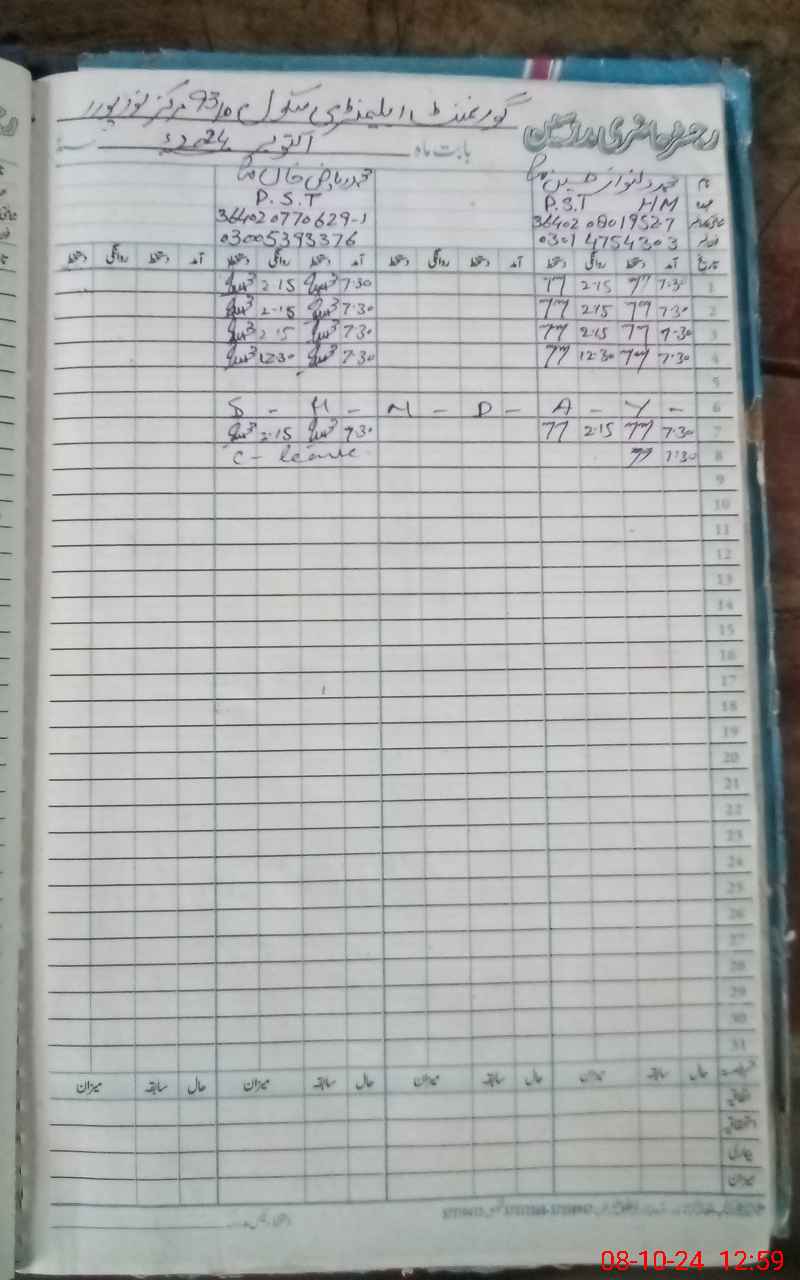 گورنمنٹ ایلیمنٹری سکول 93/D مرکز نورپور
رجسٹر حاضری مدرسین بابت ماہ اکتوبر 2024ء
نام محمد دلنواز حسین صاحب محمد ریاض خان صاحب
عہدہ P.S.T HM P.S.T
36402 0801952-7 36402 0770629-1
0301 4754303 03005393376
تاریخ آمد دستخط روانگی دستخط آمد دستخط روانگی دستخط آمد دستخط روانگی دستخط آمد دستخط روانگی دستخط
1 7.30 2.15 7.30 2.15
2 7.30 2.15 7.30 2.15
3 7.30 2.15 7.30 2.15
4 7.30 12.30 7.30 12.30
5
6 S - U - N - D - A - Y -
7 7.30 2.15 7.30 2.15
8 7.30 C - leave
9
10
11
12
13
14
15
16
17
18
19
20
21
22
23
24
25
26
27
28
29
30
31
حال سابقہ میزان حال سابقہ میزان حال سابقہ میزان حال سابقہ میزان
اتفاقیہ
استحقاقیہ
بیماری
میزان
08-10-24 12:59